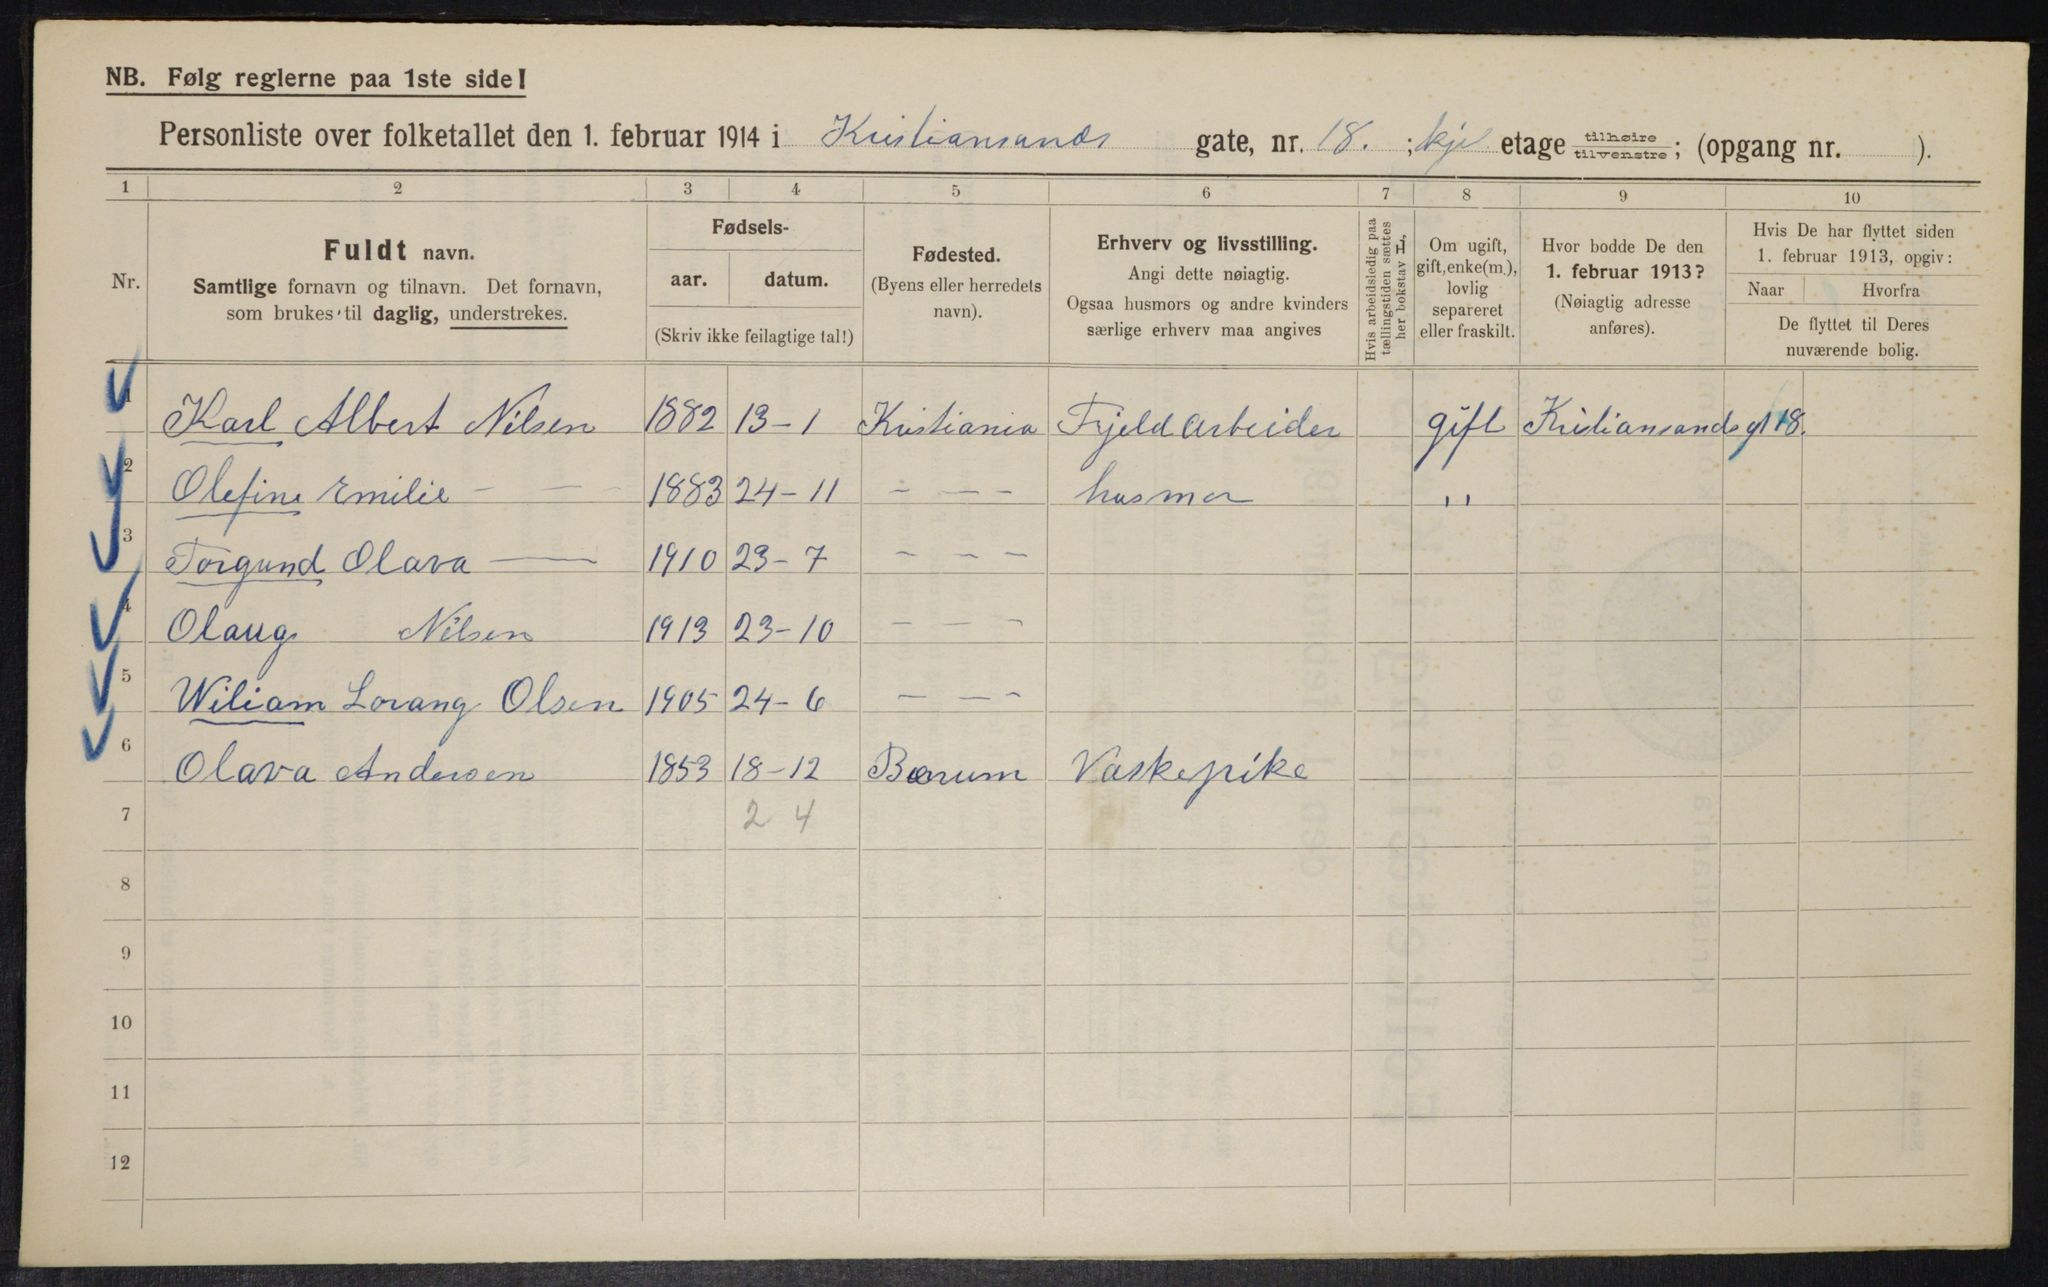 NB. Følg reglerne paa 1ste side!
Personliste over folketallet den 1. februar 1914 i Kristiansands gate, nr. 18. ; kjel etage tilhøire tilvenstre; (opgang nr. ).
1 2 3 4 5 6 7 8 9 10
Nr.
Fuldt navn.
Samtlige fornavn og tilnavn. Det fornavn,
som brukes til daglig, understrekes.
Fødsels-
aar. datum.
(Skriv ikke feilagtige tal!)
Fødested.
(Byens eller herredets
navn).
Erhverv og livsstilling.
Angi dette nøiagtig.
Ogsaa husmors og andre kvinders
særlige erhverv maa angives
Hvis arbeidsledig paa
tællingstiden sættes
her bokstav H,
Om ugift,
gift, enke(m.),
lovlig
separeret
eller fraskilt.
Hvor bodde De den
1. februar 1913?
(Nøiagtig adresse
anføres).
Hvis De har flyttet siden
1. februar 1913, opgiv:
Naar Hvorfra
De flyttet til Deres
nuværende bolig.
1 Karl Albert Nilsen 1882 13-1 Kristiania Fjeldarbeider gift Kristiansands gt 18.
2 Olefine Emilie - - - 1883 24-11 - - - husmor "
3 Torgund Olava — 1910 23-7 - - -
4 Olaug Nilsen 1913 23-10 - - -
5 Wiliam Lorang Olsen 1905 24-6 - - -
6 Olava Andersen 1853 18-12 Bærum Vaskepike
7 2 4
8
9
10
11
12